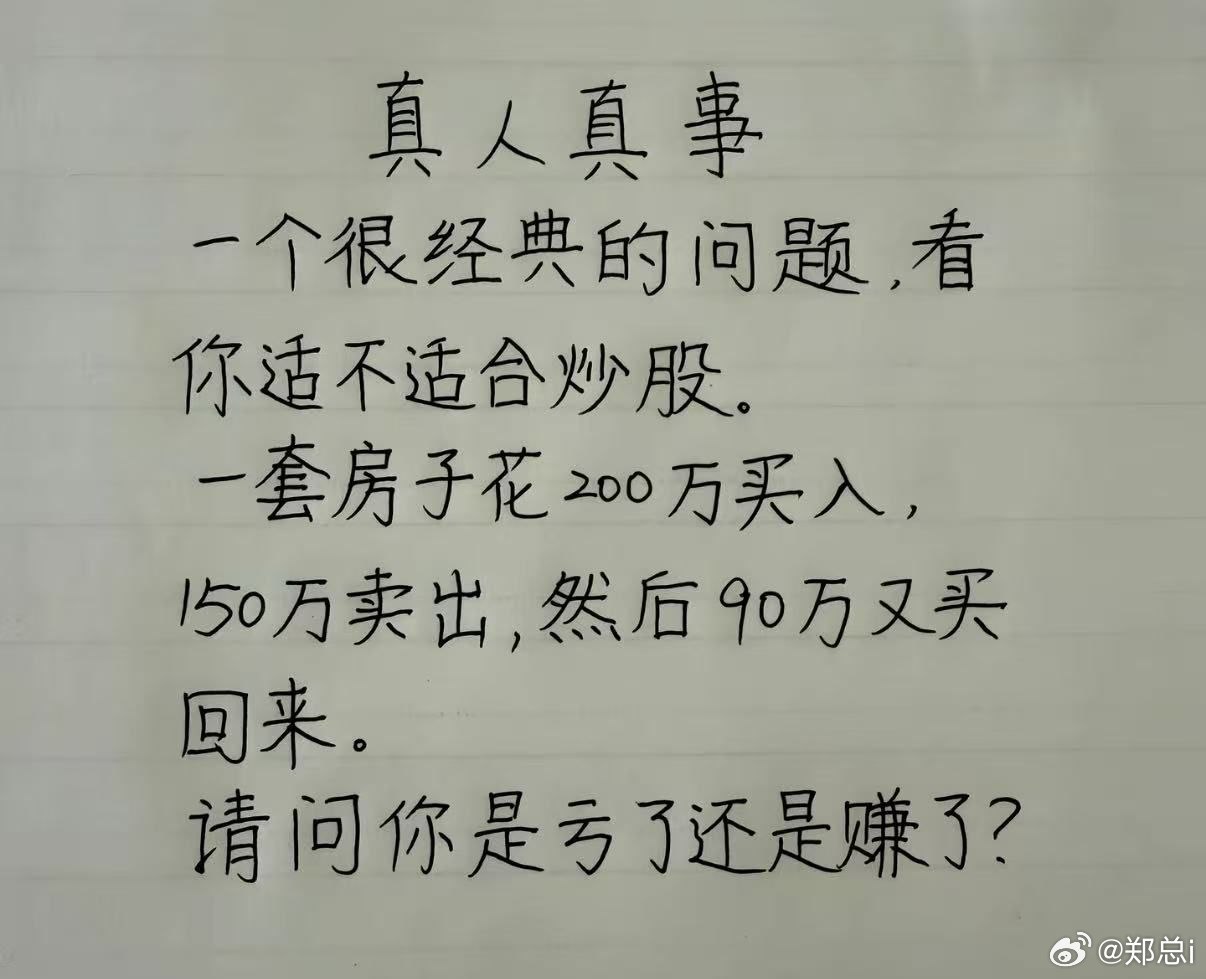 真人真事
一个很经典的问题,看
你适不适合炒股。
一套房子花200万买入,
150万卖出,然后90万又买
回来。
请问你是亏了还是赚了?
@郑总i